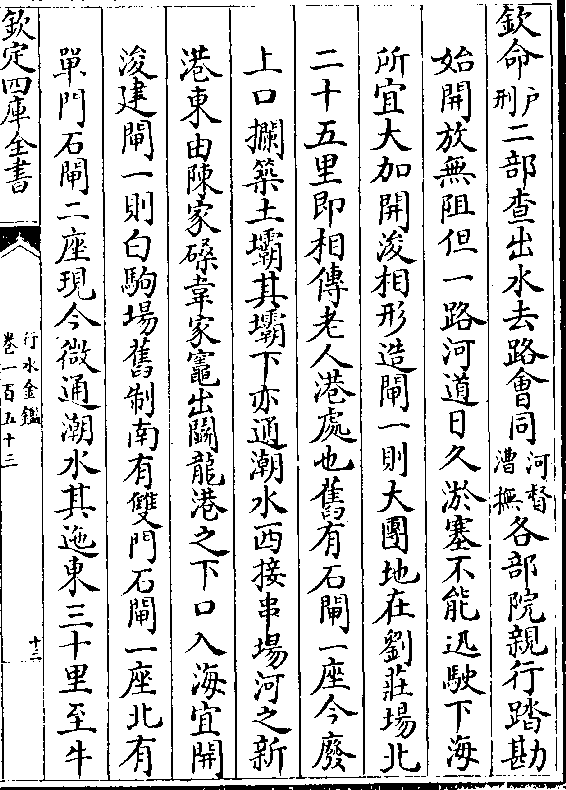 欽命戶刑二部查出水去路會同河督漕撫各部院親行踏勘
始開放無阻但一路河道日久淤塞不能迅駛下海
所宜大加開浚相形造閘一則大團地在劉莊場北
二十五里即相傳老人港處也舊有石閘一座今廢
上口攔築土壩其壩下亦通潮水西接串場河之新
港東由陳家磉韋家竈出鬬龍港之下口入海宜開
浚建閘一則白駒場舊制南有雙門石閘一座北有
單門石閘二座現今微通潮水其迤東三十里至牛
欽定四庫全書
行水金鑑
卷一百五十三
十三